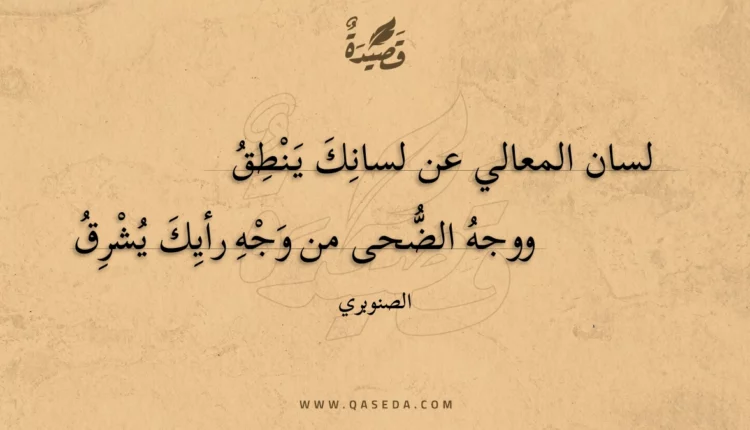 قَصِيْدَةٌ
لسان المعالي عن لسانِكَ يَنْطِقُ
ووجهُ الضُّحى من وَجْهِ رأيِكَ يُشْرِقُ
الصنوبري
WWW.QASEDA.COM